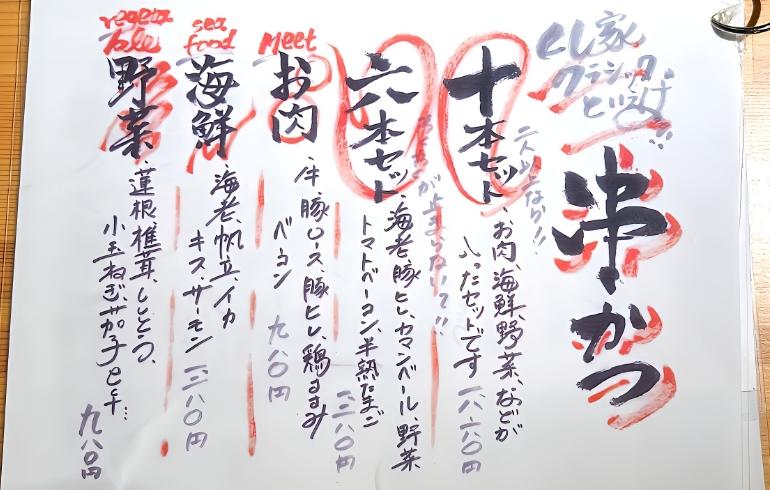 くし家
クラシック
といえば!!
串かつ
二人以上なら!!
十本セット、お肉、海鮮、野菜、などが
入ったセットです 一八八〇円
が止まらないで!!
六本セット 海老、豚ヒレ、カマンベール、野菜
トマトベーコン、半熟たまご
一三八〇円
Meet
お肉 ・牛、豚ロース、豚ヒレ、鶏ささみ
ベーコン 九八〇円
sea
food
海鮮 ・海老、帆立、イカ
キス、サーモン 一三八〇円
vegeta
ble
野菜 ・蓮根、椎茸、ししとう、
小玉ねぎ、茄子と干…
九八〇円